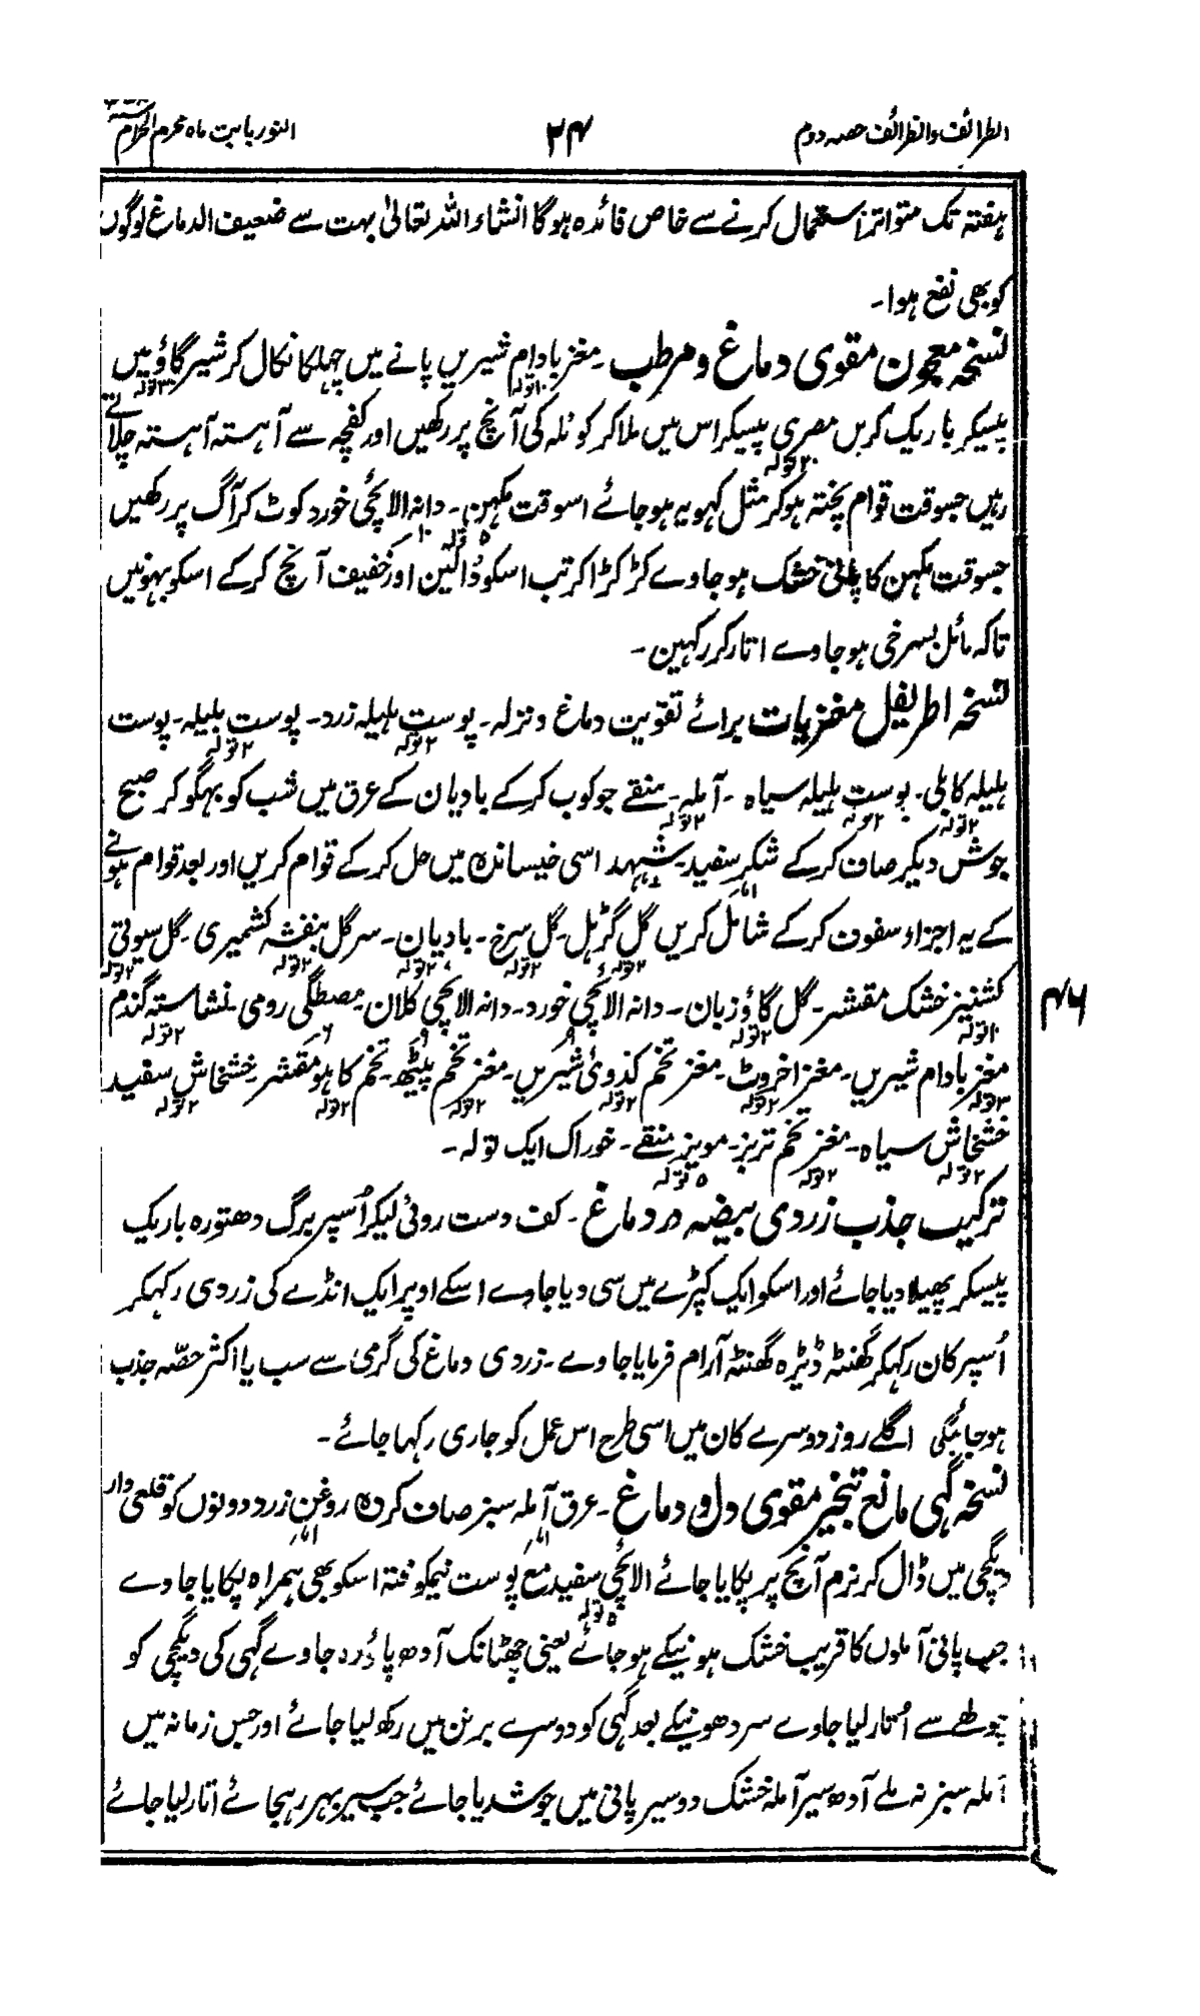 الطرائف والظرائف حصہ دوم
۲۴
النور بابت ماہ محرم الحرام
ہفتہ تک متواتر استعمال کرنے سے خاص فائدہ ہوگا انشاء اللہ تعالیٰ بہت سے ضعیف الدماغ لوگوں
کو بھی نفع ہوا۔
نسخہ معجون مقوی دماغ و مرطب۔ مغز بادام شیریں پانے میں چھلکا نکال کر شیر گاؤ میں
۱۰تولہ ۳۰تولہ
پیسکر باریک کریں مصری پیسکر اس میں ملا کر کوئلہ کی آنچ پر رکھیں اور کفچہ سے آہستہ آہستہ چلاتے
۲۰تولہ
رہیں جسوقت قوام پختہ ہو کر مثل کہویہ ہو جائے اسوقت مکہن۔ دانہ الائچی خورد کوٹ کر آگ پر رکھیں
۵تولہ
جسوقت مکہن کا پانی خشک ہو جاوے کڑکڑا کر تب اسکو ڈالین اور خفیف آنچ کرکے اسکو بہونیں
تاکہ مائل بسرخی ہو جاوے اتار کر رکہین۔
نسخہ اطریفل مغزیات برائے تقویت دماغ و نزلہ۔ پوست ہلیلہ زرد۔ پوست بلیلہ۔ پوست
۲تولہ ۲تولہ
ہلیلہ کابلی۔ پوست ہلیلہ سیاہ۔ آملہ۔ منقے جوکوب کرکے بادیان کے عرق میں شب کو بہگو کر صبح
۲تولہ ۲تولہ ۲تولہ
جوش دیکر صاف کرکے شکر سفید۔ شہد اسی خیساندہ میں حل کرکے قوام کریں اور بعد قوام ہونے
کے یہ اجزاء سفوف کرکے شامل کریں گل گڑہل۔ گل سرخ۔ بادیان۔ سر گل بنفشہ کشمیری۔ گل سیوتی
۲تولہ ۲تولہ ۲تولہ ۲تولہ ۲تولہ
کشنیز خشک مقشر۔ گل گاؤزبان۔ دانہ الائچی خورد۔ دانہ الائچی کلان۔ مصطگی رومی۔ نشاستہ گندم
۱۰تولہ ۲تولہ ۲تولہ
۴۶
مغز بادام شیریں۔ مغز اخروٹ۔ مغز تخم کدوئی شیریں۔ مغز تخم پیٹھ۔ تخم کاہو مقشر۔ خشخاش سفید
۳تولہ ۲تولہ ۲تولہ ۲تولہ ۲تولہ ۲تولہ
خشخاش سیاہ۔ مغز تخم تربز۔ مویز منقے۔ خوراک ایک تولہ۔
۲تولہ ۲تولہ ۵تولہ
ترکیب جذب زردی بیضہ در دماغ۔ کف دست روئی لیکر اُسپر برگ دھتورہ باریک
پیسکر پھیلا دیا جائے اور اسکو ایک کپڑے میں سی دیا جاوے اسکے اوپر ایک انڈے کی زردی رکہکر
اُسپر کان رکہکر گھنٹہ ڈیڑہ گھنٹہ آرام فرمایا جاوے۔ زردی دماغ کی گرمی سے سب یا اکثر حصّہ جذب
ہو جائیگی اگلے روز دوسرے کان میں اسی طرح اس عمل کو جاری رکہا جائے۔
نسخہ گہی مانع تبخیر مقوی دل و دماغ۔ عرق آملہ سبز صاف کردہ روغن زرد دونوں کو قلعی دار
دیگچی میں ڈال کر نرم آنچ پر پکایا جائے الائچی سفید مع پوست نیمکوفتہ اسکو بھی ہمراہ پکایا جاوے
۵تولہ
جب پانی آملوں کا قریب خشک ہونیکے ہو جائے یعنی چھٹانک آدھ پاؤ رہ جاوے گہی کی دیگچی کو
چولھے سے اُتار لیا جاوے سرد ہونیکے بعد گہی کو دوسرے برتن میں رکھ لیا جائے اور جس زمانہ میں
آملہ سبز نہ ملے آدھ سیر آملہ خشک دو سیر پانی میں جوشدیا جائے جب سیر بہر رہجائے اتار لیا جائے